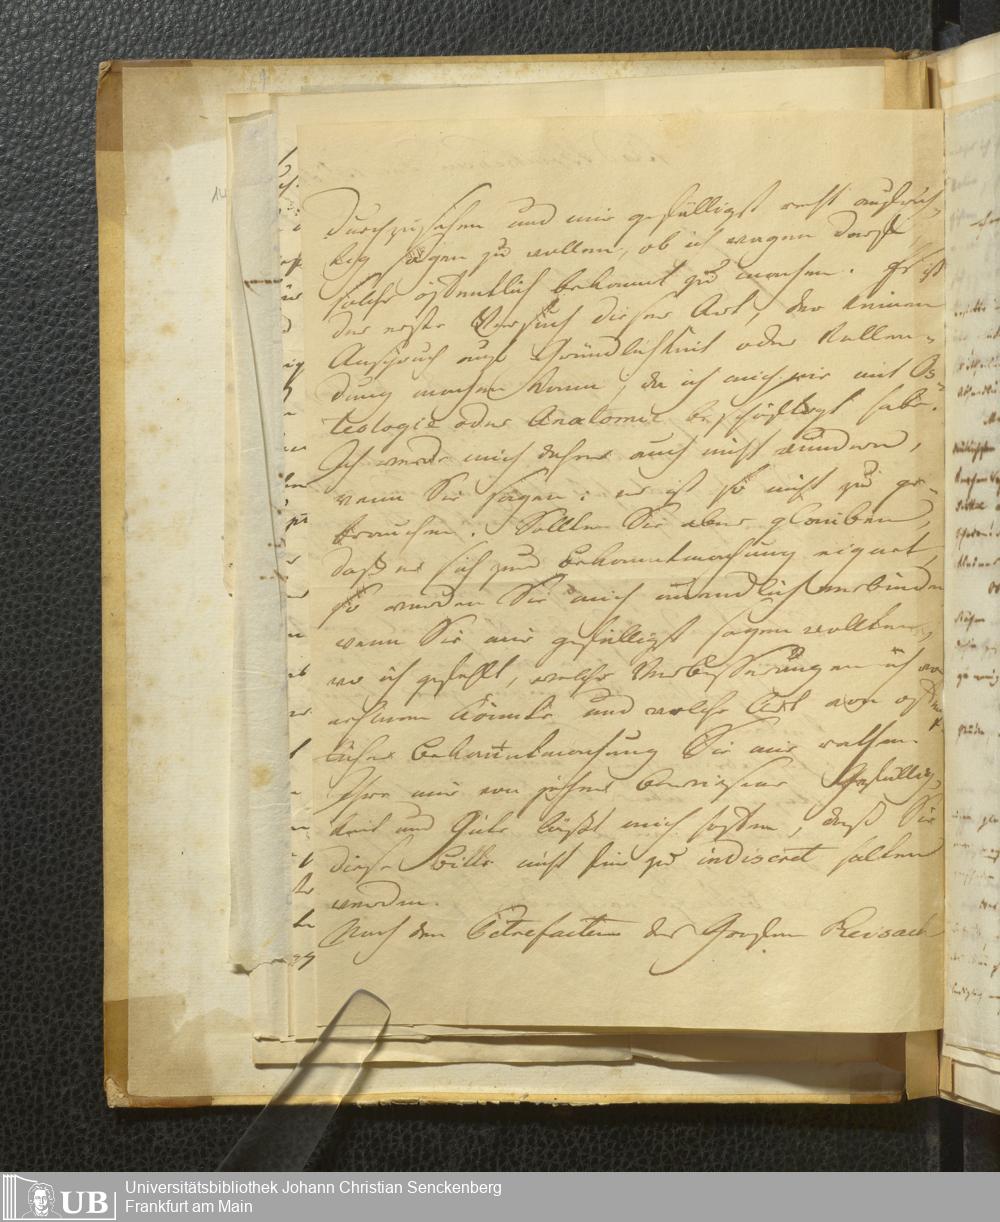 durchzusehen und mir gefälligst recht aufrich¬
tig sagen zu wollen, ob ich wagen darf
solche öffentlich bekannt zu machen. Es ist
der erste Versuch dieser Art, der keinen
Anspruch auf Gründlichkeit oder Vollen¬
dung machen kann, da ich mich nie mit Os¬
teologie oder Anatomie beschäftigt habe.
Ich werde mich daher auch nicht wundern,
wenn Sie sagen: es ist so nicht zu ge¬
brauchen. Sollten Sie aber glauben,
daß es sich zur Bekanntmachung eignet,
so werden Sie mich unendlich verbinden
wenn Sie mir gefälligst sagen wollten,
wo ich gefehlt, welche Verbesserungen ich vor
nehmen könnte und welche Art von öffent
licher Bekanntmachung Sie mir rathen.
Ihre mir von jeher bewiesene Gefällig¬
keit und Güte läßt mich hoffen, daß Sie
diese Bitte nicht für zu indiscret halten
werden.
Nach den Petrefacten des Grafen Reisach
UB
Universitätsbibliothek Johann Christian Senckenberg
Frankfurt am Main